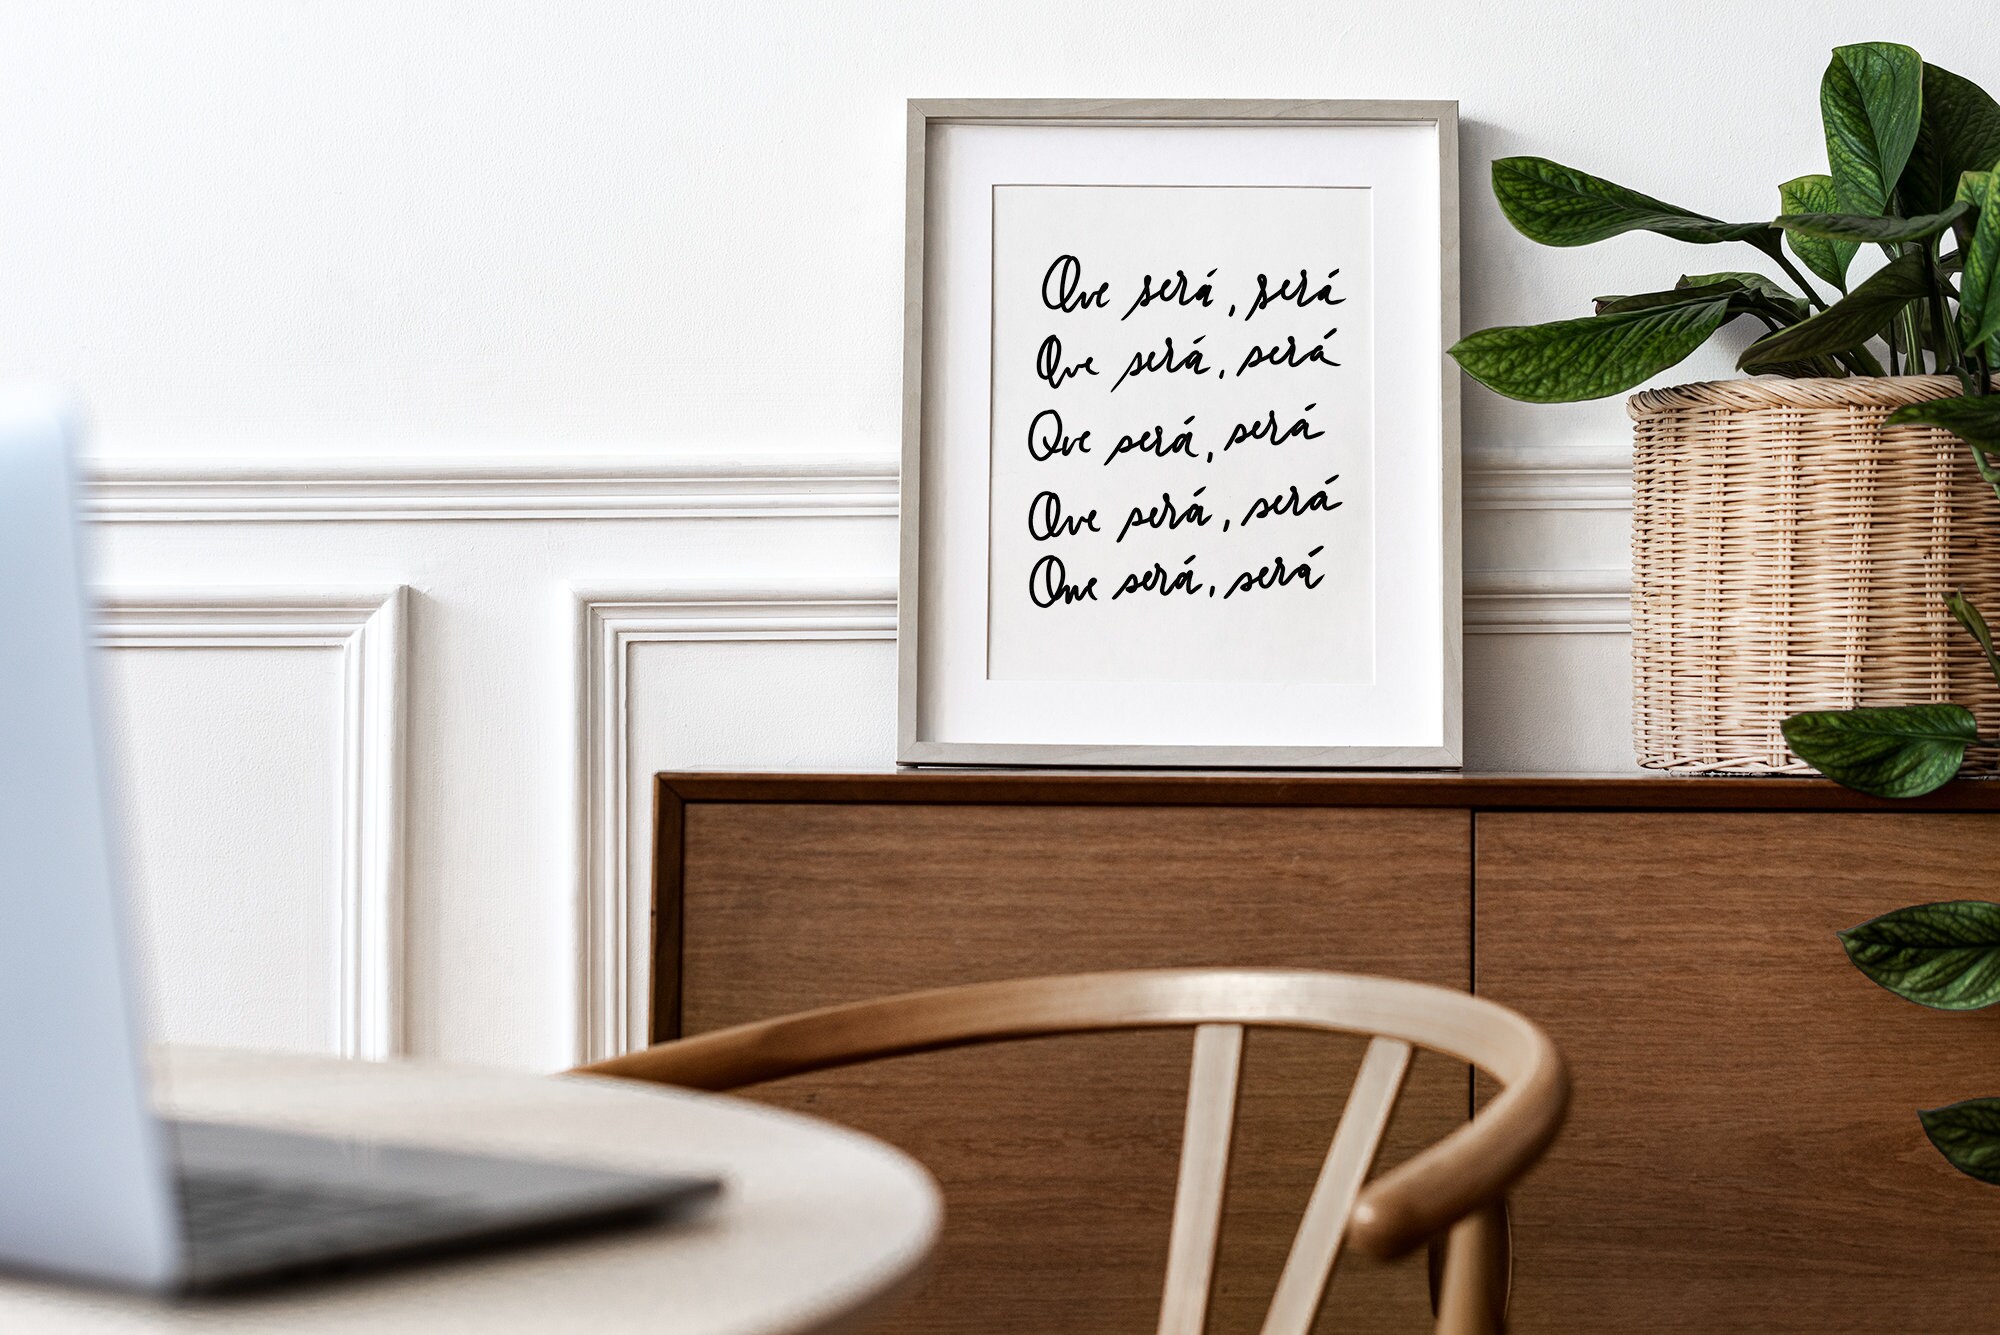 Que será, será
Que será, será
Que será, será
Que será, será
Que será, será